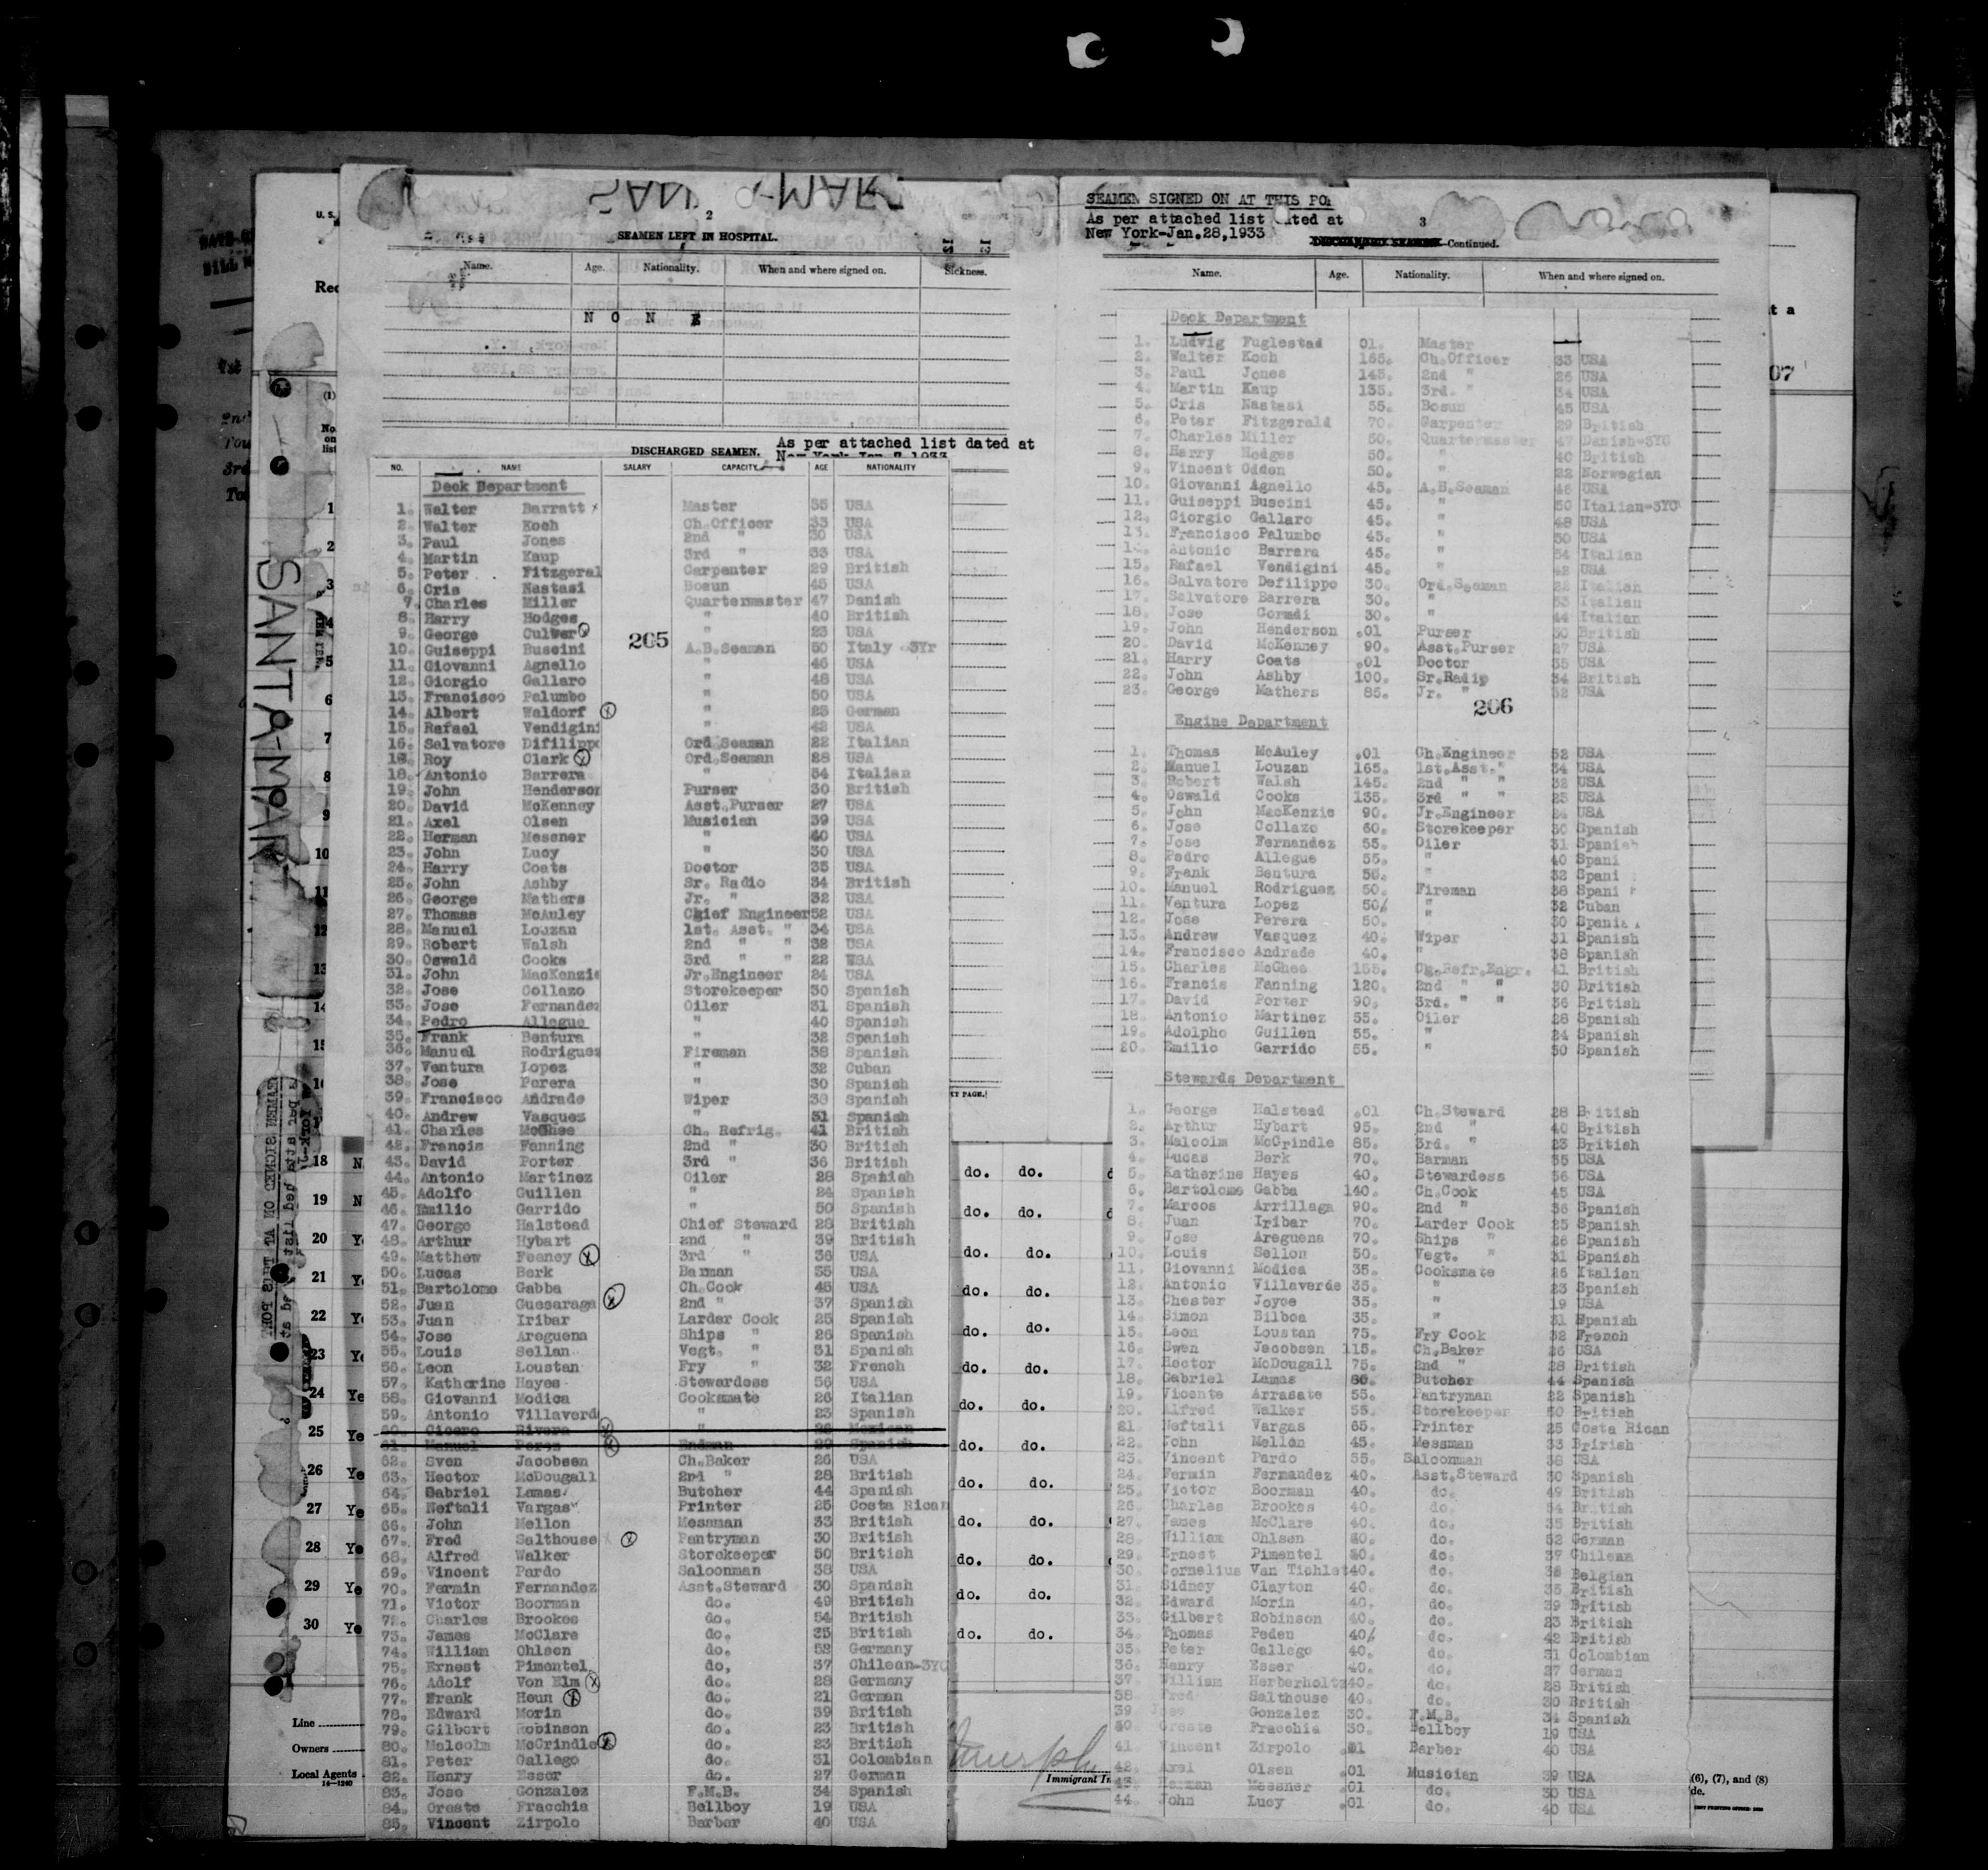 2
SEAMEN LEFT IN HOSPITAL.
Name. Age. Nationality. When and where signed on. Sickness.
N O N E
DISCHARGED SEAMEN. As per attached list dated at
New York Jan. 1933
NO. NAME SALARY CAPACITY AGE NATIONALITY
Deck Department
1. Walter Barratt Master 55 USA
2. Walter Koch Ch.Officer 33 USA
3. Paul Jones 2nd " 30 USA
4. Martin Kaup 3rd " 33 USA
5. Peter Fitzgeral Carpenter 29 British
6. Cris Nastasi Bosun 45 USA
7. Charles Miller Quartermaster 47 Danish
8. Harry Hodges " 40 British
9. George Culver " 23 USA
205
10. Guiseppi Buscini A.B.Seaman 50 Italy 3Yr
11. Giovanni Agnello " 46 USA
12. Giorgio Gallaro " 48 USA
13. Francisco Palumbo " 50 USA
14. Albert Waldorf " 23 German
15. Rafael Vendigini " 42 USA
16. Salvatore Difilippo Ord.Seaman 22 Italian
18. Roy Clark Ord.Seaman 28 USA
18. Antonio Barrera " 54 Italian
19. John Henderson Purser 30 British
20. David McKenney Asst.Purser 27 USA
21. Axel Olsen Musician 39 USA
22. Herman Messner " 40 USA
23. John Lucy " 30 USA
24. Harry Coats Doctor 35 USA
25. John Ashby Sr. Radio 34 British
26. George Mathers Jr. " 32 USA
27. Thomas McAuley Chief Engineer 52 USA
28. Manuel Louzan 1st. Asst. " 34 USA
29. Robert Walsh 2nd " " 32 USA
30. Oswald Cooks 3rd " " 22 USA
31. John MacKenzie Jr.Engineer 24 USA
32. Jose Collazo Storekeeper 30 Spanish
33. Jose Fernandez Oiler 31 Spanish
34. Pedro Allegue " 40 Spanish
35. Frank Bentura " 32 Spanish
36. Manuel Rodriguez Fireman 38 Spanish
37. Ventura Lopez " 32 Cuban
38. Jose Perera " 30 Spanish
39. Francisco Andrade Wiper 38 Spanish
40. Andrew Vasquez " 31 Spanish
41. Charles McGhee Ch. Refrig. 41 British
42. Francis Fanning 2nd " 30 British
43. David Porter 3rd " 36 British
44. Antonio Martinez Oiler 28 Spanish
45. Adolfo Guillen " 24 Spanish
46. Emilio Garrido " 50 Spanish
47. George Halstead Chief Steward 28 British
48. Arthur Hybart 2nd " 39 British
49. Matthew Feeney 3rd " 36 USA
50. Lucas Berk Barman 35 USA
51. Bartolome Gabba Ch.Cook 45 USA
52. Juan Guesaraga 2nd " 37 Spanish
53. Juan Iribar Larder Cook 25 Spanish
54. Jose Areguena Ships " 26 Spanish
55. Louis Sellan Vegt. " 31 Spanish
56. Leon Loustan Fry " 32 French
57. Katherine Hayes Stewardess 56 USA
58. Giovanni Modica Cooksmate 26 Italian
59. Antonio Villaverd " 23 Spanish
60. Cicero Rivera " 26 Mexican
61. Manuel Perez 29 Spanish
62. Sven Jacobsen Ch.Baker 26 USA
63. Hector McDougall 2nd " 28 British
64. Gabriel Lamas Butcher 44 Spanish
65. Neftali Vargas Printer 25 Costa Rican
66. John Mellon Messman 33 British
67. Fred Salthouse Pantryman 30 British
68. Alfred Walker Storekeeper 50 British
69. Vincent Pardo Saloonman 38 USA
70. Fermin Fernandez Asst.Steward 30 Spanish
71. Victor Boorman do. 49 British
72. Charles Brookes do. 54 British
73. James McClare do. 35 British
74. William Ohlsen do. 52 Germany
75. Ernest Pimentel do. 37 Chilean-3YO
76. Adolf Von Elm do. 28 Germany
77. Frank Heun do. 21 German
78. Edward Morin do. 39 British
79. Gilbert Robinson do. 23 British
80. Malcolm McCrindle do. 23 British
81. Peter Gallego do. 31 Colombian
82. Henry Esser do. 27 German
83. Jose Gonzalez F.M.B. 34 Spanish
84. Oreste Fracchia Bellboy 19 USA
85. Vincent Zirpolo Barber 40 USA
SEAMEN SIGNED ON AT THIS PO
As per attached list dated at
New York-Jan.28,1933
3
DISCHARGED SEAMEN-Continued.
Name. Age. Nationality. When and where signed on.
Deck Department
1. Ludvig Fuglestad 01. Master
2. Walter Koch 165. Ch.Officer 33 USA
3. Paul Jones 145. 2nd " 26 USA
4. Martin Kaup 135. 3rd. " 34 USA
5. Cris Nastasi 55. Bosun 45 USA
6. Peter Fitzgerald 70. Carpenter 29 British
7. Charles Miller 50. Quartermaster 47 Danish-3YO
8. Harry Hodges 50. " 40 British
9. Vincent Odden 50. " 22 Norwegian
10. Giovanni Agnello 45. A.B.Seaman 46 USA
11. Guiseppi Buscini 45. " 50 Italian-3YO
12. Giorgio Gallaro 45. " 48 USA
13. Francisco Palumbo 45. " 50 USA
14. Antonio Barrera 45. " 54 Italian
15. Rafael Vendigini 45. " 42 USA
16. Salvatore Defilippo 30. Ord.Seaman 22 Italian
17. Salvatore Barrera 30. " 33 Italian
18. Jose Gormdi 30. " 44 Italian
19. John Henderson .01 Purser 30 British
20. David McKenney 90. Asst.Purser 27 USA
21. Harry Coats .01 Doctor 35 USA
22. John Ashby 100. Sr.Radio 34 British
23. George Mathers 85. Jr. " 32 USA
206
Engine Department
1. Thomas McAuley .01 Ch.Engineer 52 USA
2. Manuel Louzan 165. 1st.Asst." 34 USA
3. Robert Walsh 145. 2nd " " 32 USA
4. Oswald Cooks 135. 3rd " " 23 USA
5. John MacKenzie 90. Jr.Engineer 24 USA
6. Jose Collazo 60. Storekeeper 30 Spanish
7. Jose Fernandez 55. Oiler 31 Spanish
8. Pedro Allegue 55. " 40 Spani
9. Frank Bentura 55. " 32 Spani
10. Manuel Rodriguez 50. Fireman 38 Spani
11. Ventura Lopez 50/ " 32 Cuban
12. Jose Perera 50. " 30 Spanis
13. Andrew Vasquez 40. Wiper 31 Spanish
14. Francisco Andrade 40. " 38 Spanish
15. Charles McGhee 155. Ch.Refr.Engr. 41 British
16. Francis Fanning 120. 2nd " " 30 British
17. David Porter 90. 3rd. " " 36 British
18. Antonio Martinez 55. Oiler 28 Spanish
19. Adolpho Guillen 55. " 24 Spanish
20. Emilio Garrido 55. " 50 Spanish
Stewards Department
1. George Halstead .01 Ch.Steward 28 British
2. Arthur Hybart 95. 2nd " 40 British
3. Malcolm McCrindle 85. 3rd. " 23 British
4. Lucas Berk 70. Barman 35 USA
5. Katherine Hayes 40. Stewardess 56 USA
6. Bartolome Gabba 140. Ch.Cook 45 USA
7. Marcos Arrillaga 90. 2nd " 36 Spanish
8. Juan Iribar 70. Larder Cook 25 Spanish
9. Jose Areguena 70. Ships " 26 Spanish
10. Louis Sellon 50. Vegt. " 31 Spanish
11. Giovanni Modica 35. Cooksmate 26 Italian
12. Antonio Villaverde 35. " 23 Spanish
13. Chester Joyce 35. " 19 USA
14. Simon Bilboa 35. " 31 Spanish
15. Leon Loustan 75. Fry Cook 32 French
16. Swen Jacobsen 115. Ch.Baker 26 USA
17. Hector McDougall 75. 2nd " 28 British
18. Gabriel Lamas 66. Butcher 44 Spanish
19. Vicente Arrasate 55. Pantryman 22 Spanish
20. Alfred Walker 55. Storekeeper 50 British
21. Neftali Vargas 65. Printer 25 Costa Rican
22. John Mellon 45. Messman 33 Brirish
23. Vincent Pardo 55. Saloonman 38 USA
24. Fermin Fernandez 40. Asst.Steward 30 Spanish
25. Victor Boorman 40. do. 49 British
26. Charles Brookes 40. do. 54 British
27. James McClare 40. do. 35 British
28. William Ohlsen 40. do. 52 German
29. Ernest Pimentel 40. do. 37 Chilean
30. Cornelius Van Tichlet 40. do. 38 Belgian
31. Sidney Clayton 40. do. 35 British
32. Edward Morin 40. do. 39 British
33. Gilbert Robinson 40. do. 23 British
34. Thomas Peden 40/ do. 42 British
35. Peter Gallego 40. do. 31 Colombian
36. Henry Esser 40. do. 27 German
37. William Herberholtz 40. do. 28 British
38 Fred Salthouse 40. do. 30 British
39 Jose Gonzalez 30. F.M.B. 34 Spanish
40. Oreste Fracchia 30. Bellboy 19 USA
41. Vincent Zirpolo .01 Barber 40 USA
42. Axel Olsen .01 Musician 39 USA
43. Herman Messner .01 do. 30 USA
44. John Lucy .01 do. 40 USA
SANTA-MAR
Line
Owners
Local Agents
14-1240
Immigrant In
(6), (7), and (8)
de.